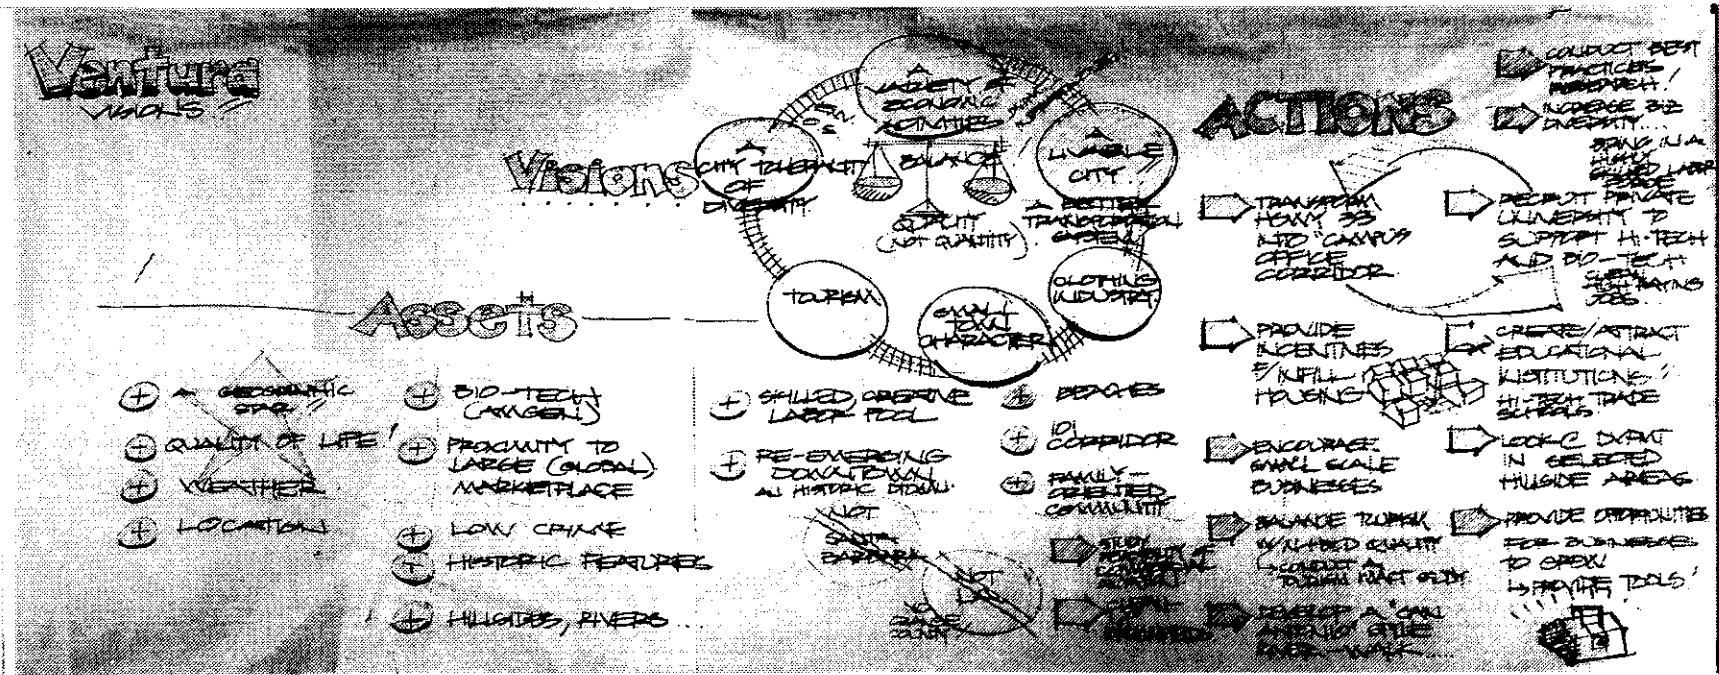 Ventura
VISIONS!!
Visions
A
VARIETY OF
ECONOMIC
ACTIVITIES
A
CITY TOLERANT
OF
DIVERSITY.
BALANCE
QUALITY
(NOT QUANTITY).
A
LIVABLE
CITY!!
A BETTER
TRANSPORTATION
SYSTEM
TOURISM
SMALL
TOWN
CHARACTER
CLOTHING
INDUSTRY.
Assets
+ A GEOGRAPHIC
STAR!!
+ QUALITY OF LIFE!
+ WEATHER
+ LOCATION
+ BIO-TECH
(AMGEN)
+ PROXIMITY TO
LARGE (GLOBAL)
MARKETPLACE
+ LOW CRIME
+ HISTORIC FEATURES
+ HILLSIDES, RIVERS...
+ SKILLED, CREATIVE
LABOR POOL
+ RE-EMERGING
DOWNTOWN
AN HISTORIC DTOWN.
+ BEACHES
+ 101
CORRIDOR
+ FAMILY-
ORIENTED
COMMUNITY
NOT
SANTA
BARBARA
NOT
NO
ORANGE
COUNTY
ACTIONS
CONDUCT BEST
PRACTICES
RESEARCH!
INCREASE
DIVERSITY...
BRING IN A
SKILLED LABOR
TRANSFORM
HGWY 33
INTO "CAMPUS
OFFICE
CORRIDOR
RECRUIT PRIVATE
UNIVERSITY TO
SUPPORT HI-TECH
AND BIO-TECH
HIGH PAYING
JOBS
PROVIDE
INCENTIVES
F/INFILL
HOUSING
CREATE/ATTRACT
EDUCATIONAL
INSTITUTIONS
HI-TECH TRADE
SCHOOLS
ENCOURAGE
SMALL SCALE
BUSINESSES
LOOK @ DVPMT
IN SELECTED
HILLSIDE AREAS
STUDY
BALANCE TOURISM
QUALITY
CONDUCT A
TOURISM IMPACT STUDY
PROVIDE OPPORTUNITIES
FOR BUSINESSES
TO GROW
PROVIDE TOOLS!
DEVELOP A "SAN
ANTONIO" STYLE
RIVER-WALK....